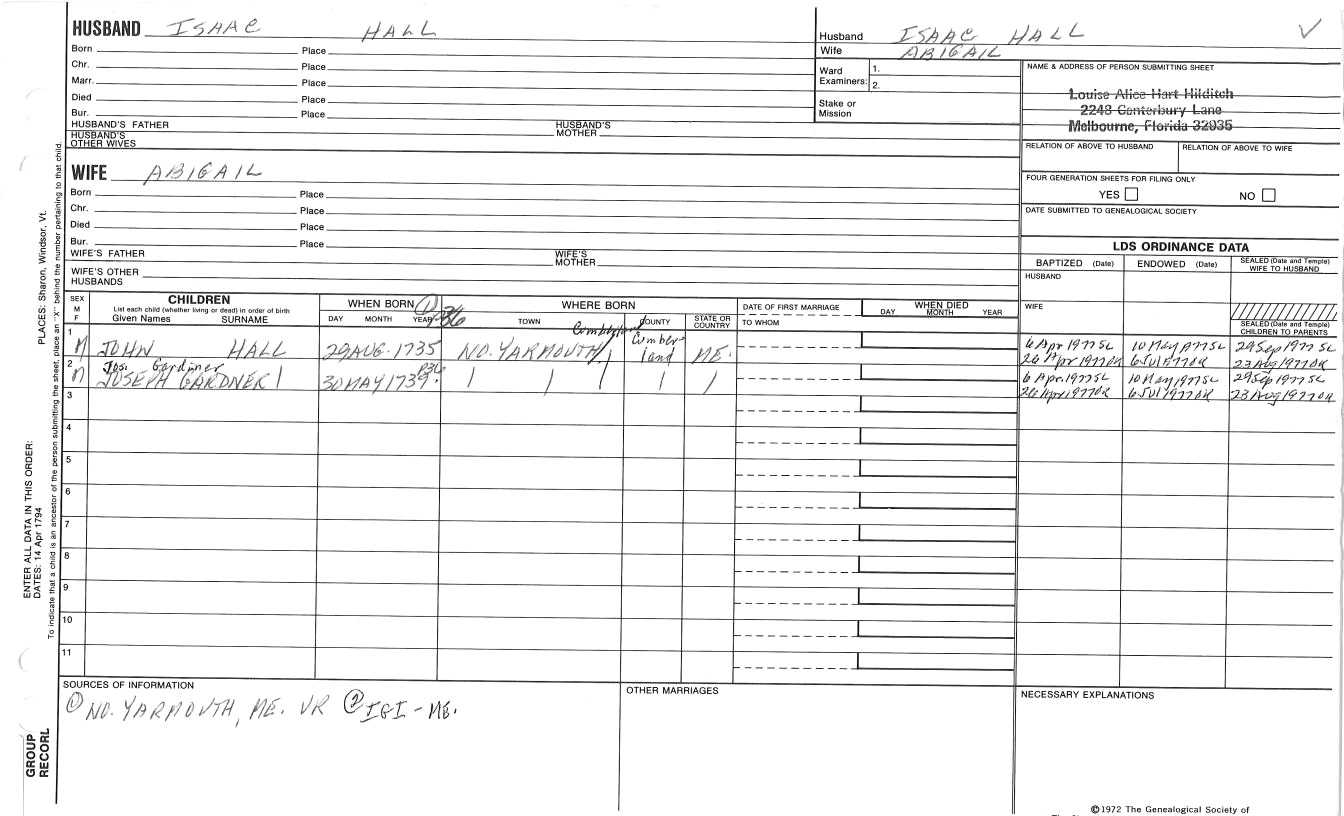 HUSBAND ISAAC HALL
Born Place
Chr. Place
Marr. Place
Died Place
Bur. Place
HUSBAND'S FATHER HUSBAND'S MOTHER
HUSBAND'S OTHER WIVES
WIFE ABIGAIL
Born Place
Chr. Place
Died Place
Bur. Place
WIFE'S FATHER WIFE'S MOTHER
WIFE'S OTHER HUSBANDS
Husband ISAAC HALL
Wife ABIGAIL
Ward Examiners: 1.
2.
Stake or Mission
NAME & ADDRESS OF PERSON SUBMITTING SHEET
Louise Alice Hart Hilditch
2248 Canterbury Lane
Melbourne, Florida 32935
RELATION OF ABOVE TO HUSBAND RELATION OF ABOVE TO WIFE
FOUR GENERATION SHEETS FOR FILING ONLY
YES NO
DATE SUBMITTED TO GENEALOGICAL SOCIETY
LDS ORDINANCE DATA
BAPTIZED (Date) ENDOWED (Date) SEALED (Date and Temple) WIFE TO HUSBAND
HUSBAND
WIFE
SEALED (Date and Temple) CHILDREN TO PARENTS
SEX M F
CHILDREN
List each child (whether living or dead) in order of birth
Given Names SURNAME
WHEN BORN ①
DAY MONTH YEAR
WHERE BORN
TOWN COUNTY STATE OR COUNTRY
DATE OF FIRST MARRIAGE
TO WHOM
WHEN DIED
DAY MONTH YEAR
1 M JOHN HALL 29 AUG. 1735 NO. YARMOUTH, Cumberland ME. 6 Apr 1977SL 10 May 1977SL 29 Sep 1977 SL
26 Apr 1977OK 6 Jul 1977OK 23 Aug 1977OK
Jos. Gardiner
2 M JOSEPH GARDNER 30 MAY 1739. 6 Apr. 1977SL 10 May 1977SL 29 Sep 1977SL
26 Apr 1977OK 6 Jul 1977OK 23 Aug 1977OK
3
4
5
6
7
8
9
10
11
SOURCES OF INFORMATION
① NO. YARMOUTH, ME. VR ② IGI - ME.
OTHER MARRIAGES
NECESSARY EXPLANATIONS
©1972 The Genealogical Society of
ENTER ALL DATA IN THIS ORDER:
DATES: 14 Apr 1794
PLACES: Sharon, Windsor, Vt.
To indicate that a child is an ancestor of the person submitting the sheet, place an "X" behind the number pertaining to that child.
GROUP
RECORD